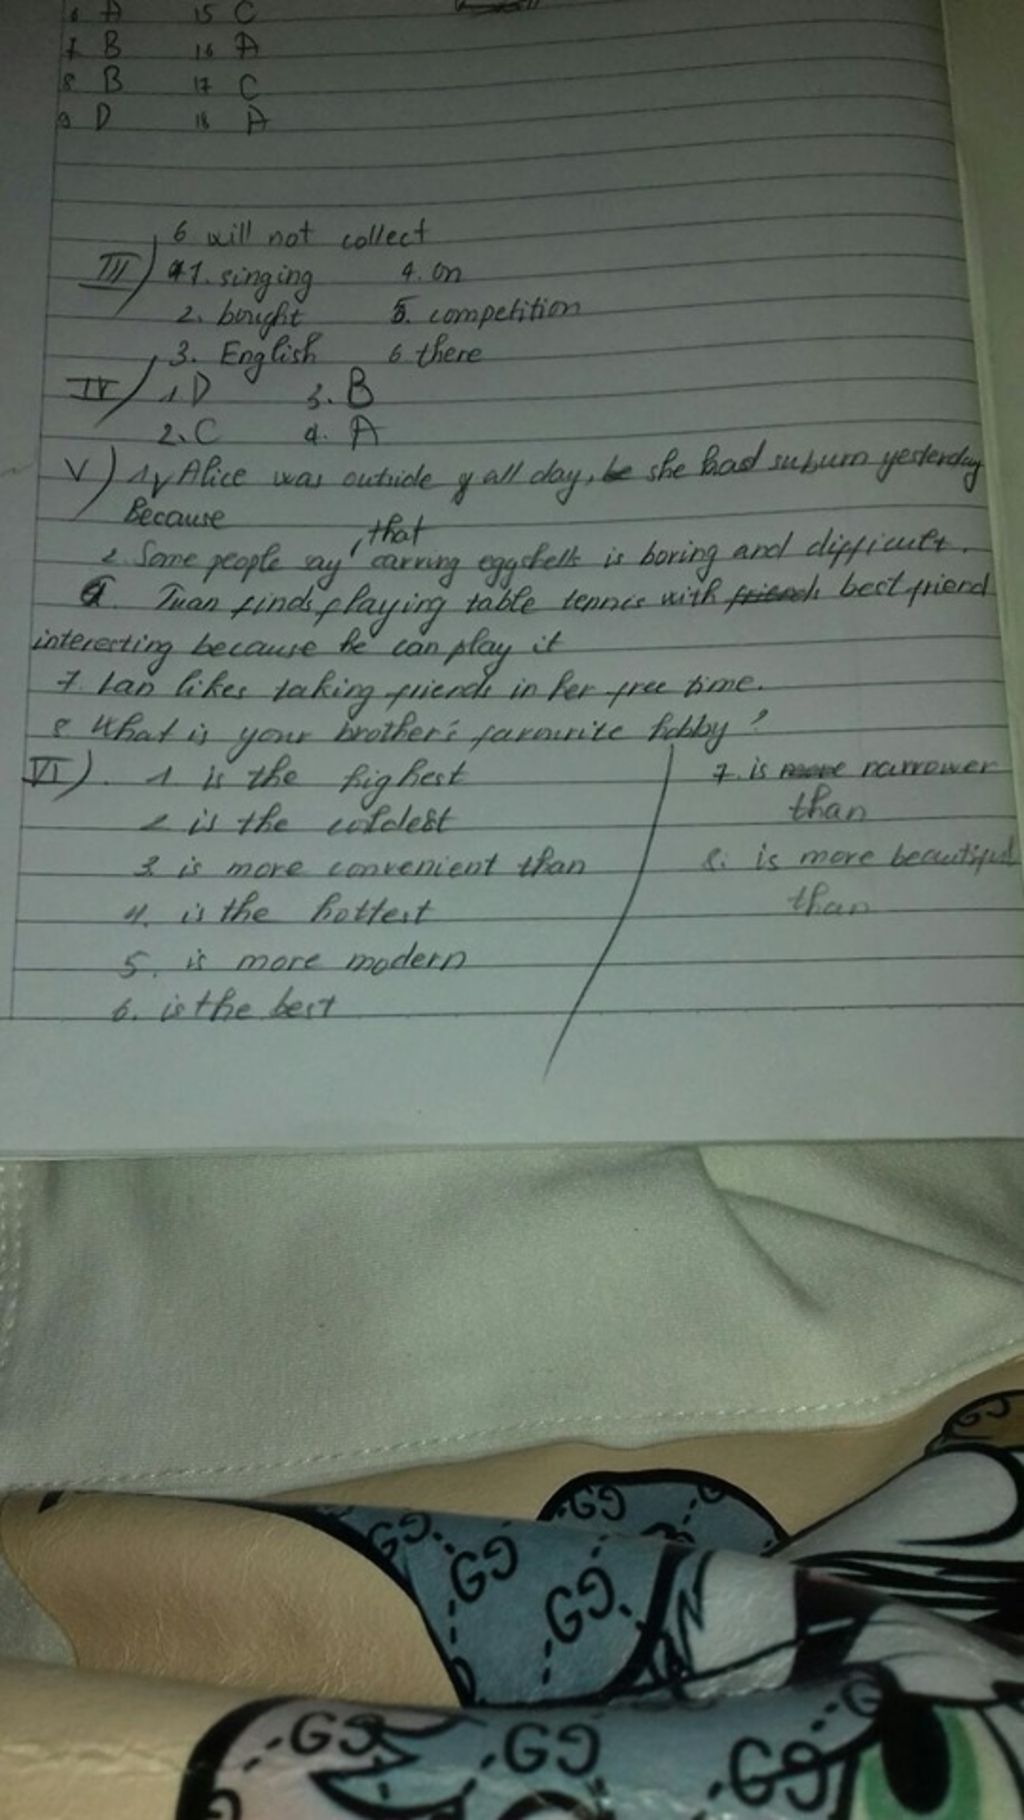 6 A 15 C
7 B 16 A
8 B 17 C
9 D 18 A
6 will not collect
III) 1. singing 4. on
2. bought 5. competition
3. English 6 there
IV) 1 D 3. B
2. C 4. A
V) 1, Alice was outside all day, she had suburn yesterday
Because
that
2. Some people say carving eggshells is boring and difficult.
Tuan finds playing table tennis with best friend
interesting because he can play it
7. Lan likes taking friends in her free time.
8 What is your brother's favourite hobby?
VI). 1 is the highest 7. is narrower
than
2 is the coldest
3 is more convenient than 8. is more beautiful
4. is the hottest than
5. is more modern
6. is the best
GG
GG
GG
GG
GG
GG